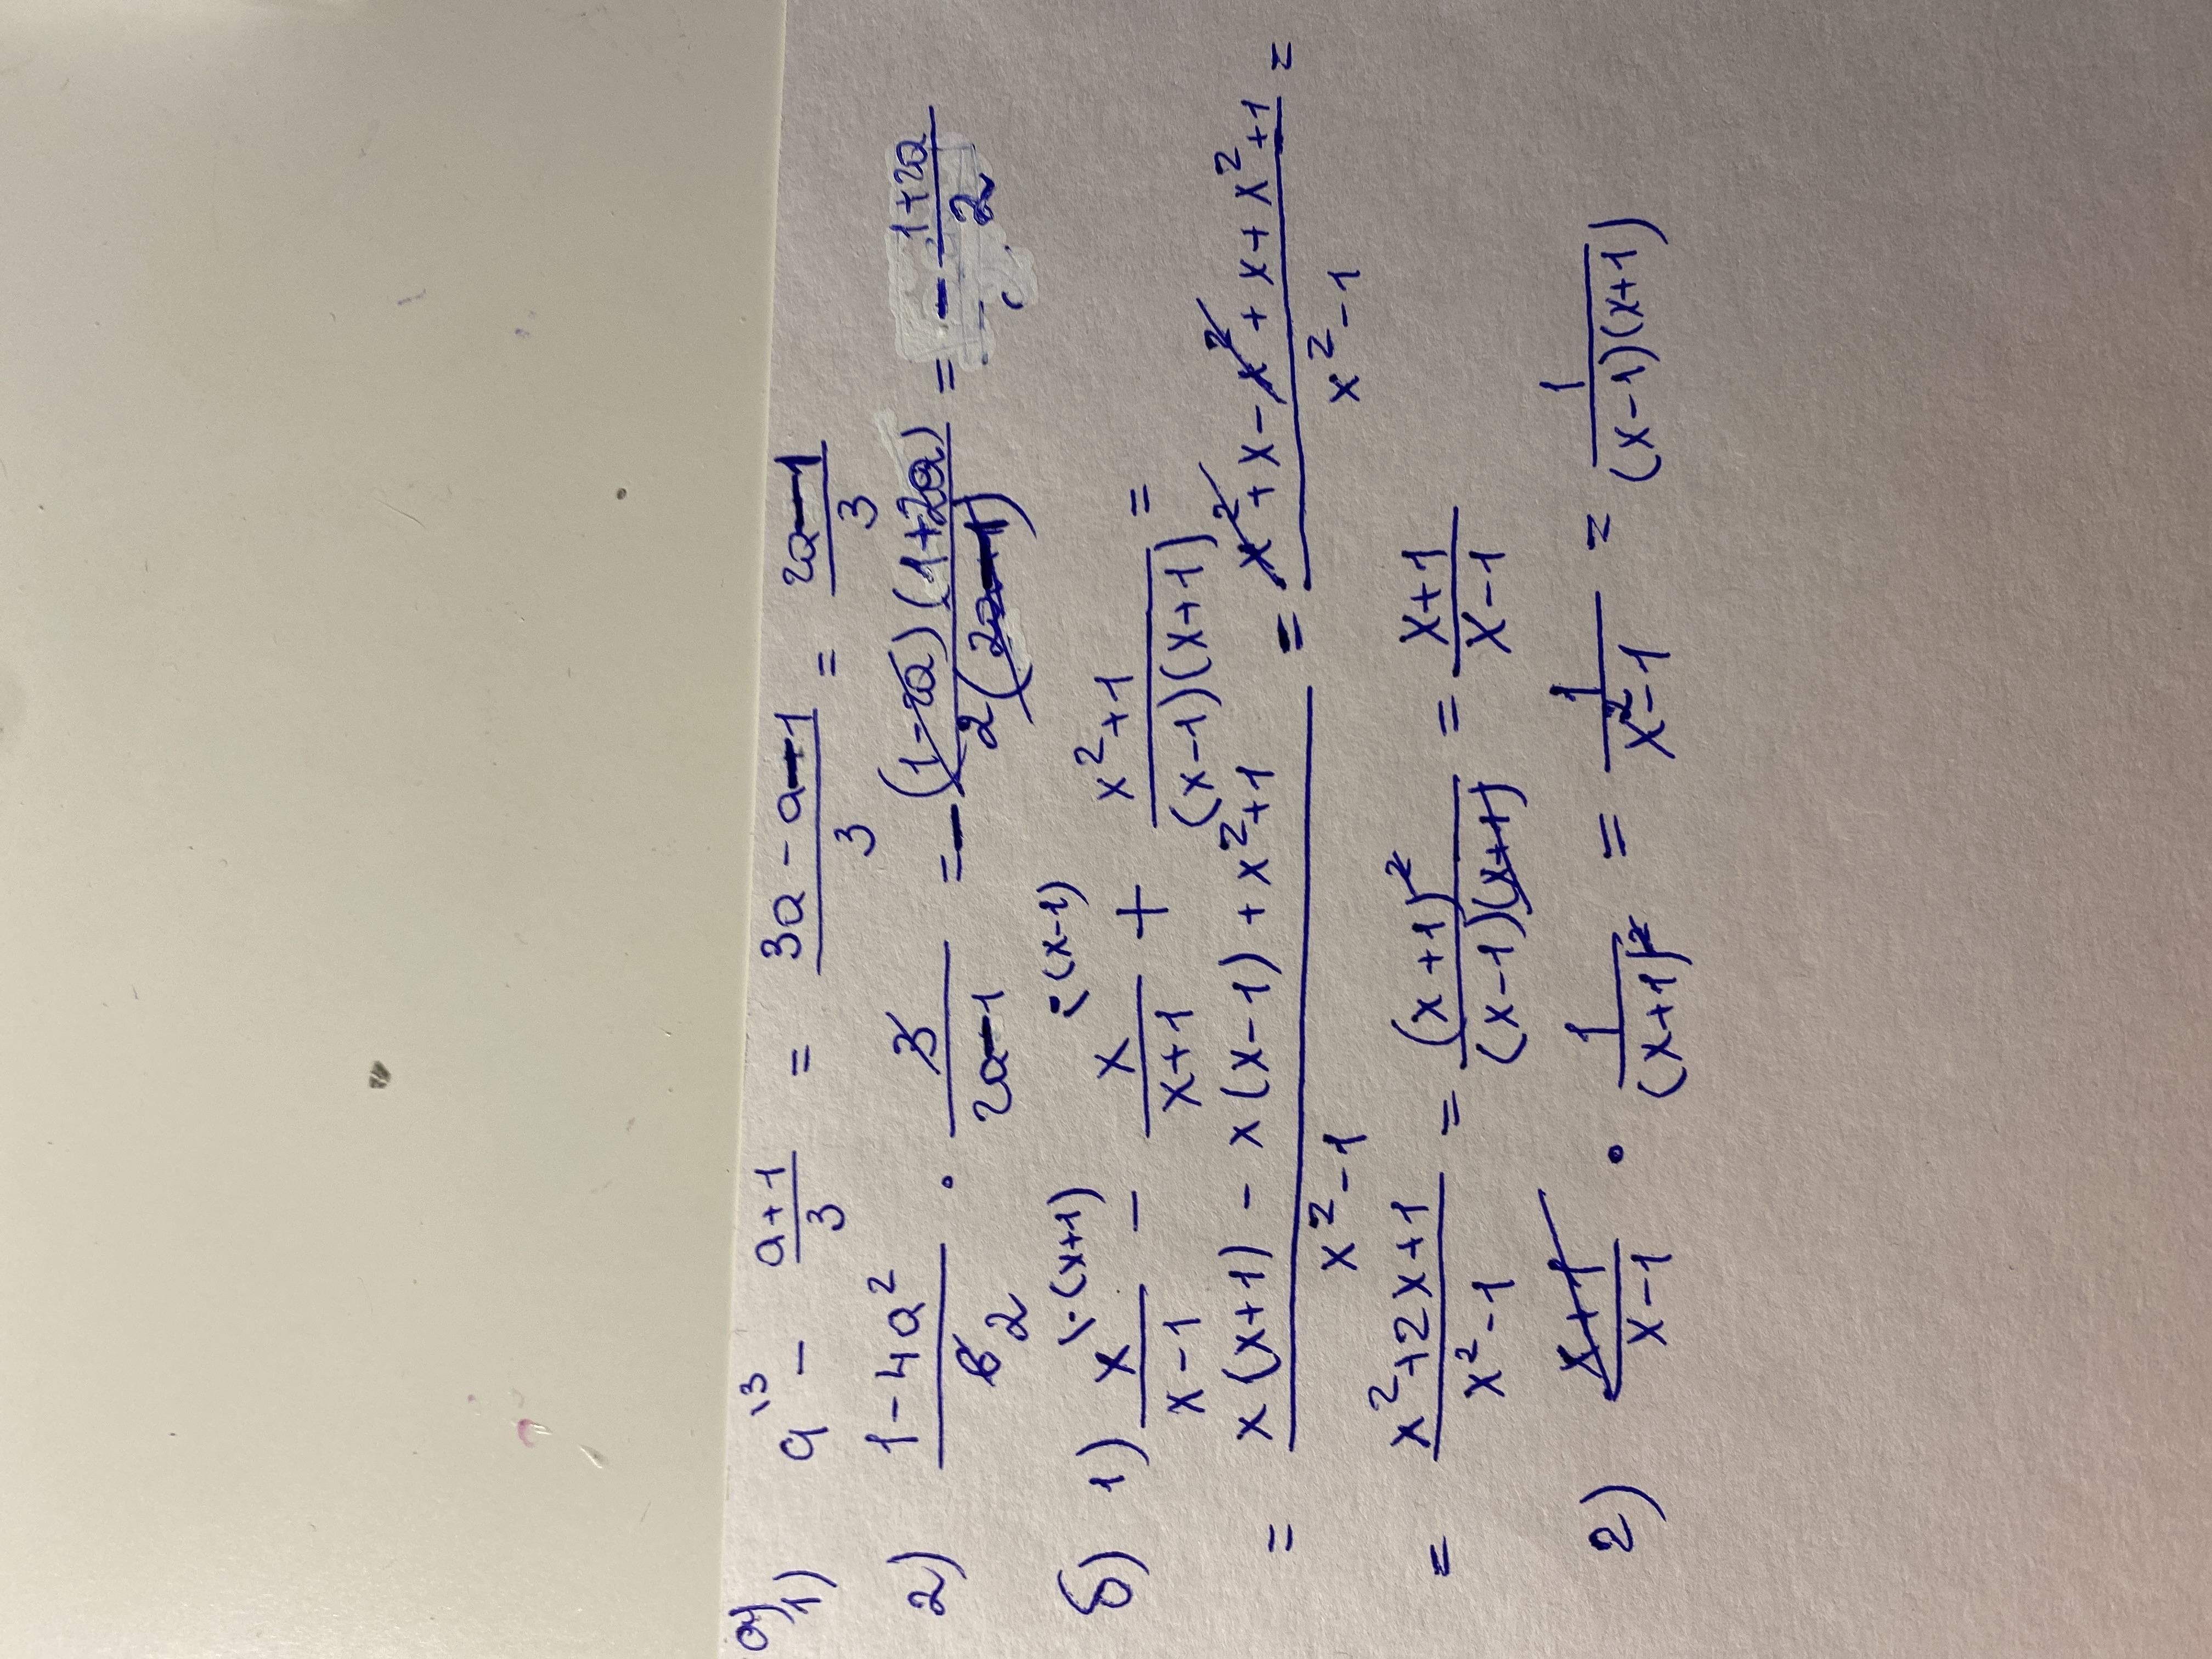 а) 1) a\3 - (a+1)/3 = (3a-a-1)/3 = (2a-1)/3
2) (1-4a²)/6 2 · 3/(2a-1) = -((1-2a)(1+2a))/(2(2a-1)) = -(1+2a)/2
б) 1) x\·(x+1)/(x-1) - x\·(x-1)/(x+1) + (x²+1)/((x-1)(x+1)) =
= (x(x+1) - x(x-1) + x²+1)/(x²-1) = (x²+x-x²+x+x²+1)/(x²-1) =
= (x²+2x+1)/(x²-1) = (x+1)²/((x-1)(x+1)) = (x+1)/(x-1)
2) (x+1)/(x-1) · 1/(x+1)² = 1/(x²-1) = 1/((x-1)(x+1))